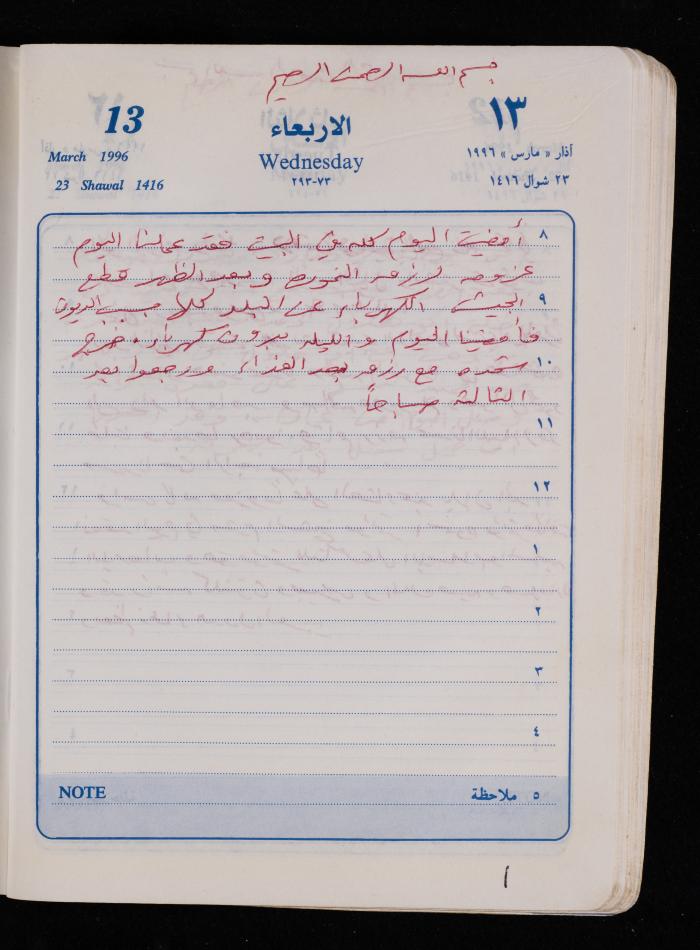 بسم الله الرحمن الرحيم
13 الاربعاء ١٣
March 1996 Wednesday آذار « مارس » ١٩٩٦
23 Shawal 1416 ٧٣-٢٩٣ ٢٣ شوال ١٤١٦
٨ أمضيت اليوم كله في البيت فقد عملنا اليوم
عزومه لرزمر النموره وبعد الظهر قطع
٩ الجيش الكهرباء عن البلد كلها بسبب الديون
فأمضينا اليوم والليله بدون كهرباء. خرج
١٠ سعده مع رزمر بعد الغذاء ورجعوا بعد
الثالثة صباحاً
١١
١٢
١
٢
٣
٤
NOTE ٥ ملاحظة
١